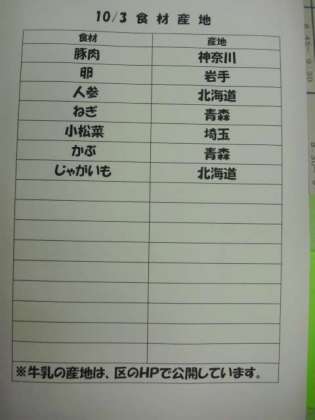 10/3 食材産地
食材 産地
豚肉 神奈川
卵 岩手
人参 北海道
ねぎ 青森
小松菜 埼玉
かぶ 青森
じゃがいも 北海道
※牛乳の産地は、区のHPで公開しています。